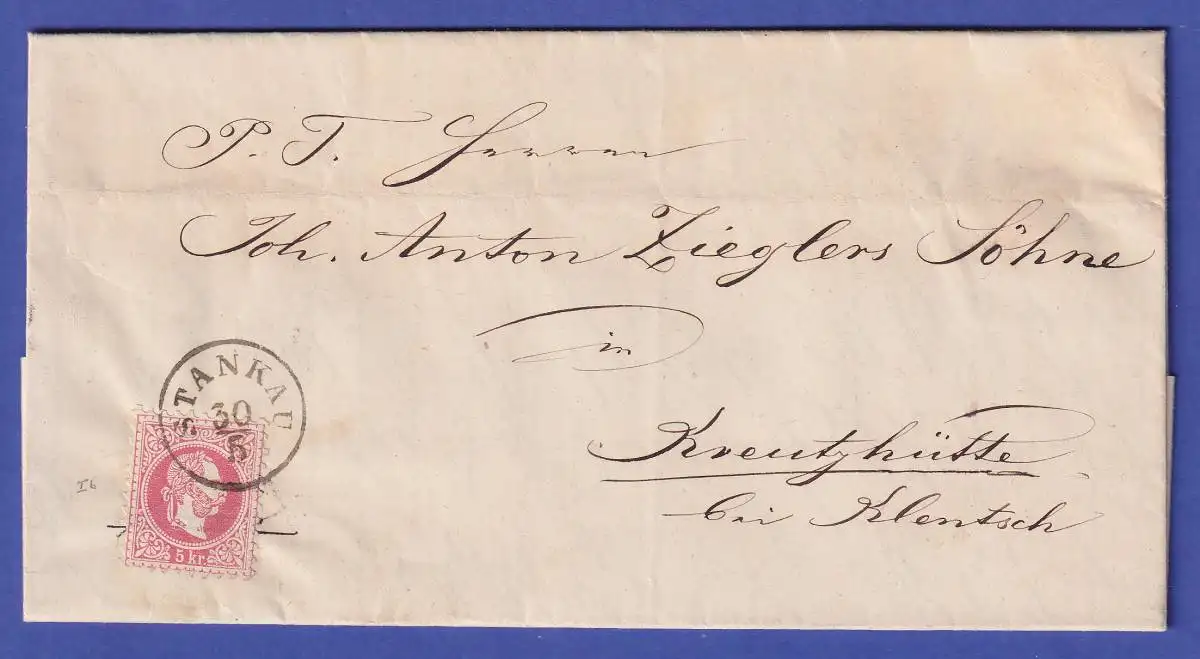 P. T. Herren
Joh. Anton Zieglers Söhne
in
Kreutzhütte
bei Klentsch
STANKAU
30
5
5 kr.
Ib